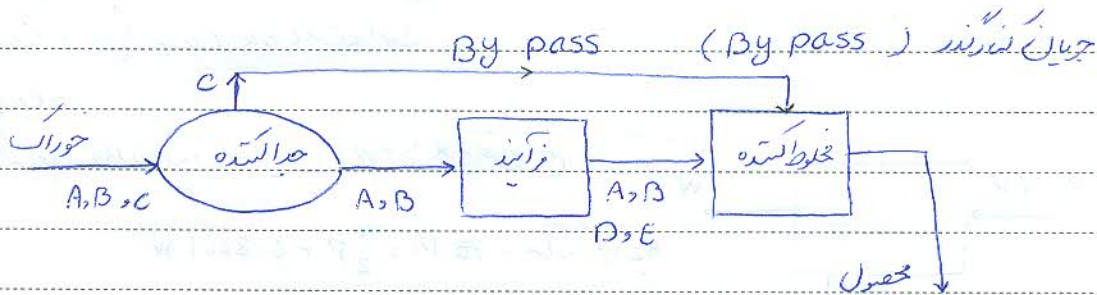 جریان کنارگذر ( By pass )
By pass
C
خوراک
A, B, C
جداکننده
A, B
فرآیند
A, B
D, E
مخلوط کننده
محصول